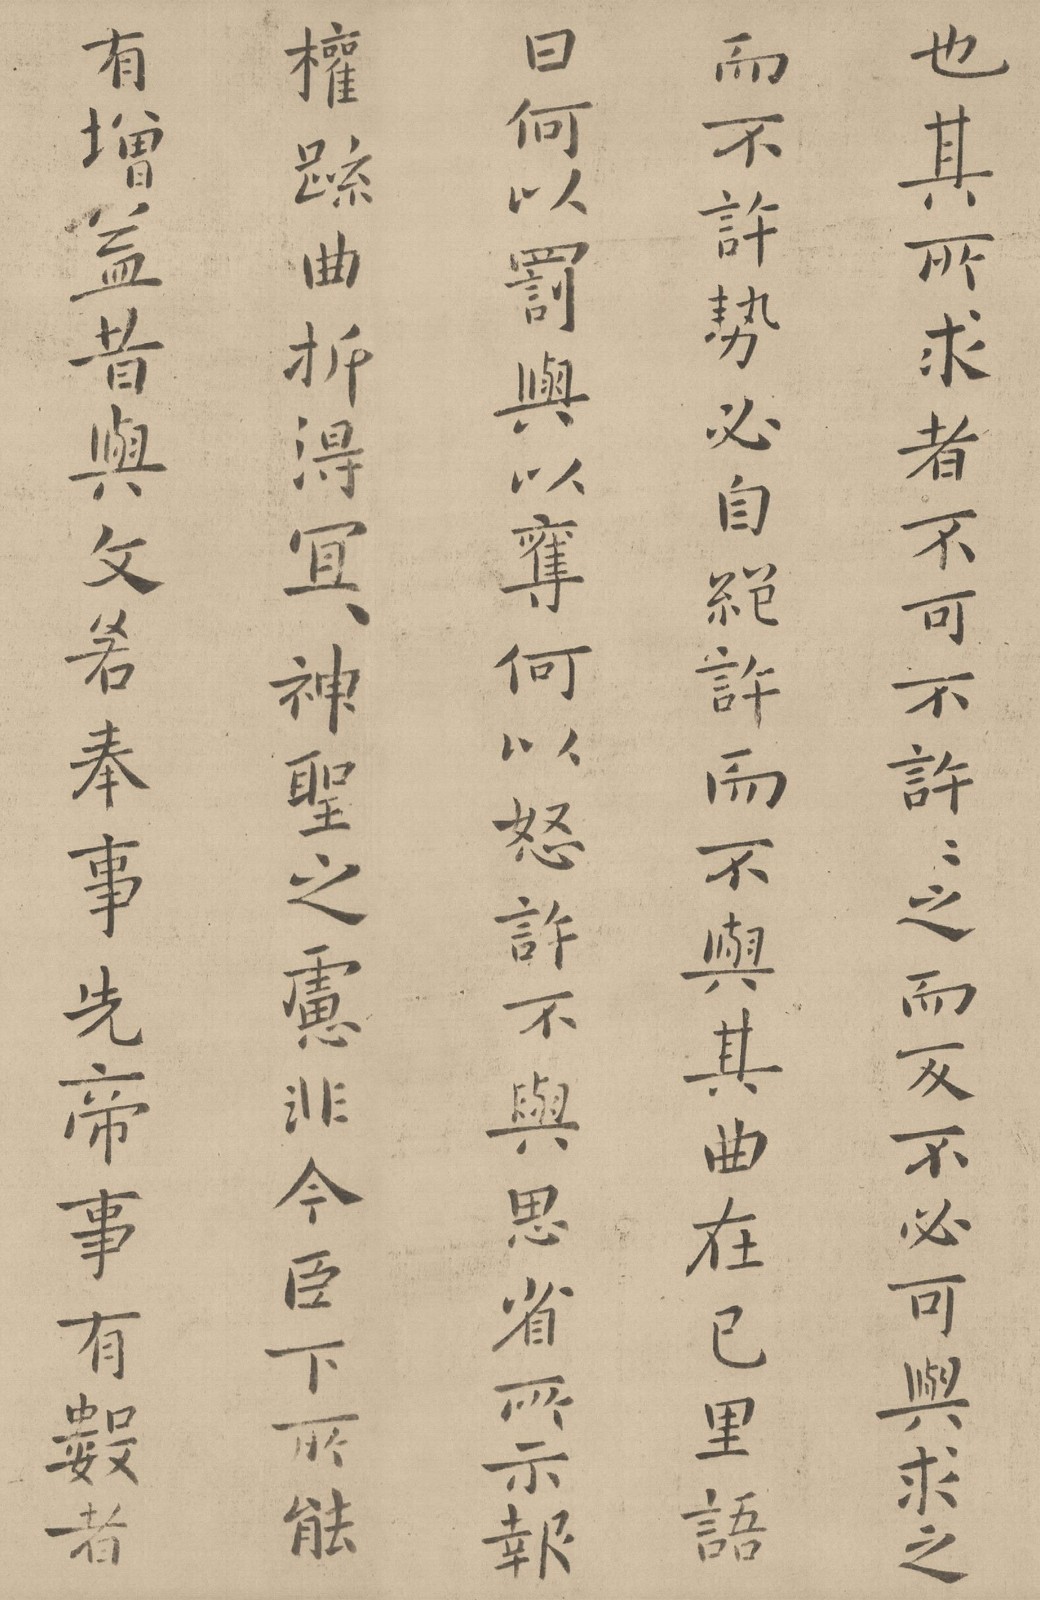 也其所求者不可不許〻之而反不必可與求之
而不許勢必自絶許而不與其曲在已里語
曰何以罰與以奪何以怒許不與思省所示報
權踈曲折得冝〻神聖之慮非今臣下所能
有增益昔與文若奉事先帝事有數者